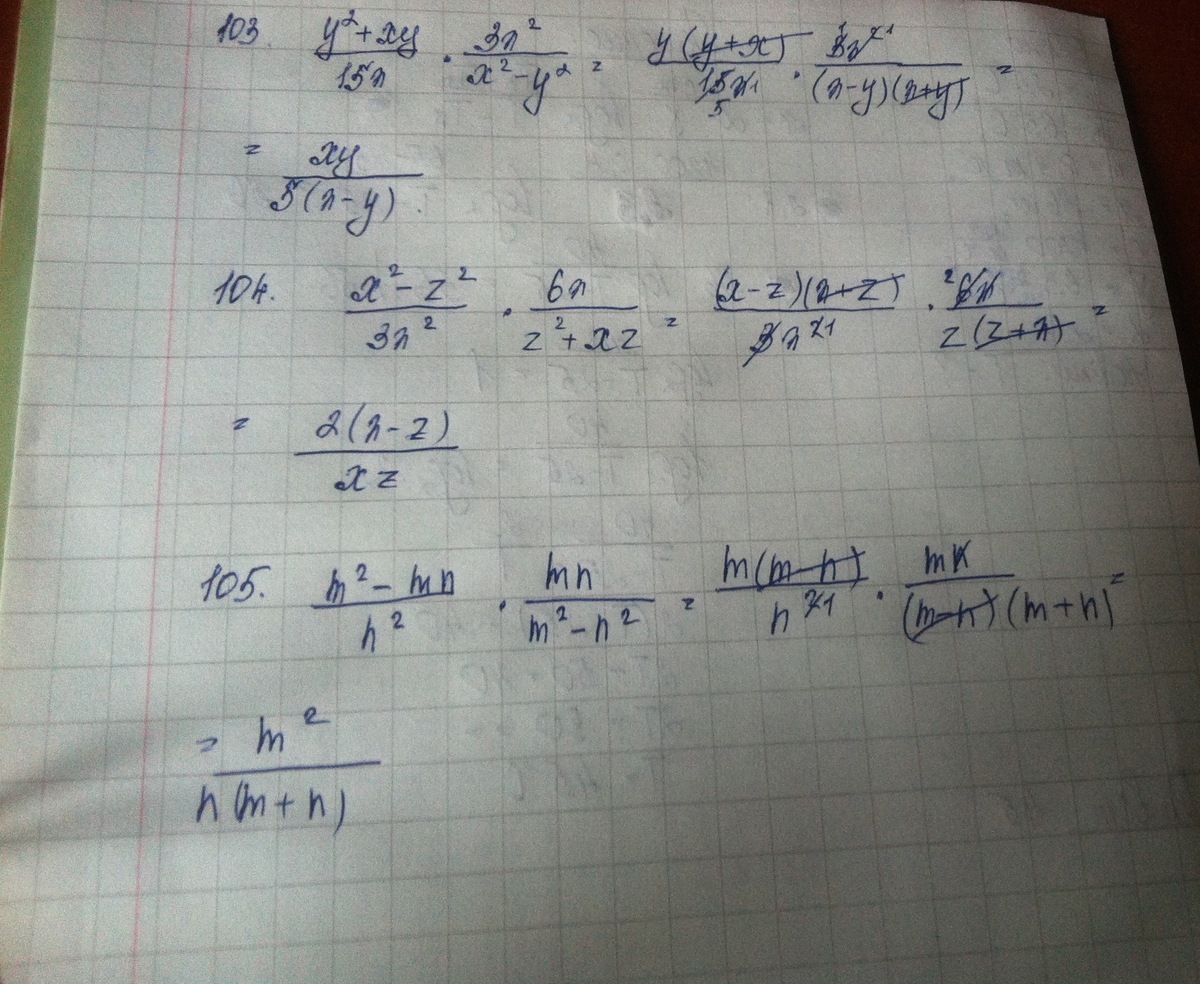 103. (y²+xy)/(15x) · (3x²)/(x²-y²) = (y(y+x))/(15x) · (3x²)/((x-y)(x+y)) =
= (xy)/(5(x-y)).
104. (x²-z²)/(3x²) · (6x)/(z²+xz) = ((x-z)(x+z))/(3x²) · (6x)/(z(z+x)) =
= (2(x-z))/(xz)
105. (m²-mn)/(n²) · (mn)/(m²-n²) = (m(m-n))/(n²) · (mn)/((m-n)(m+n)) =
= (m²)/(n(m+n))